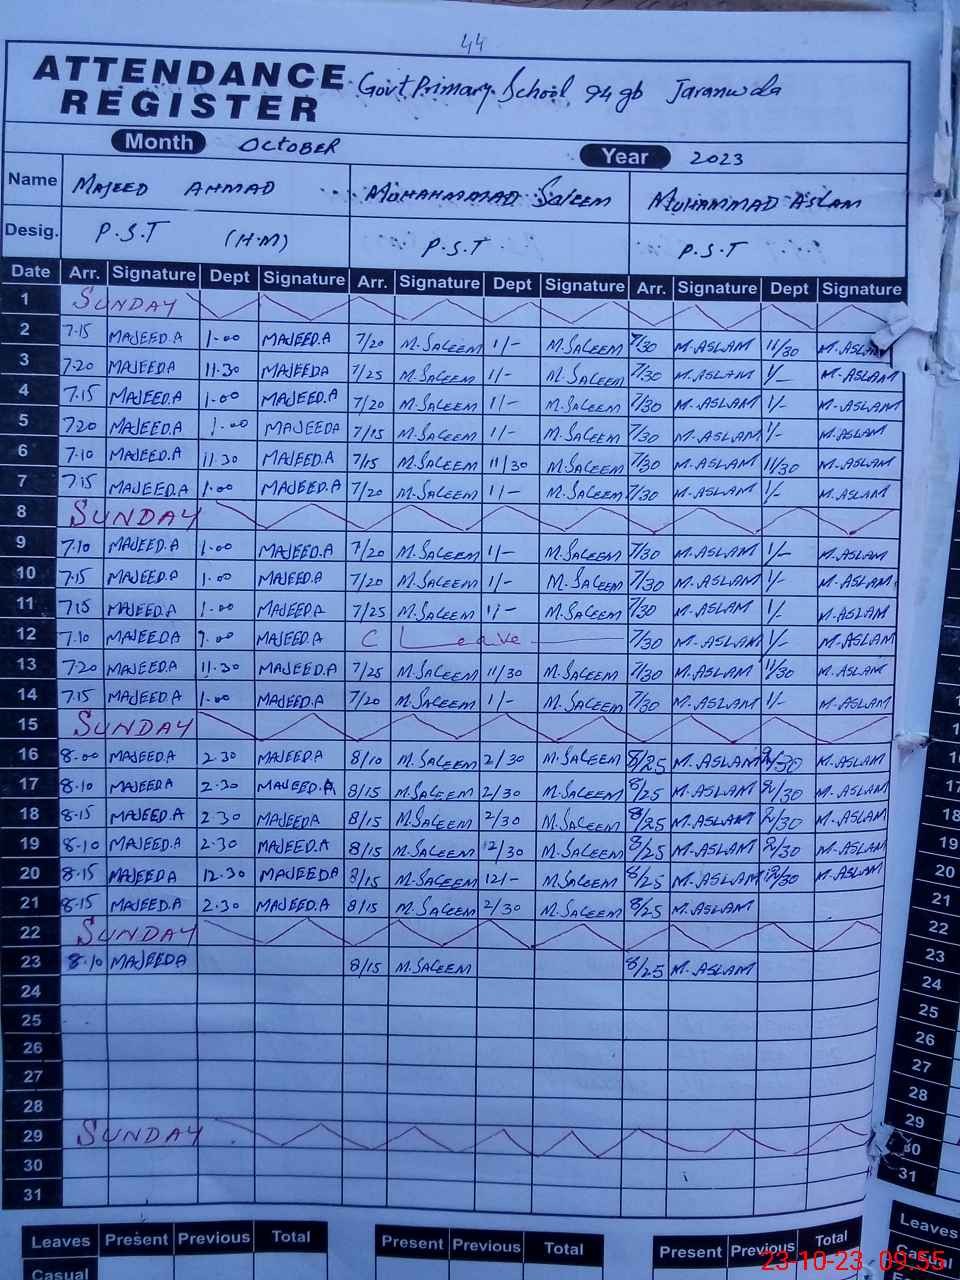 44
ATTENDANCE REGISTER Govt Primary School 94 gb Jaranwala
Month OCTOBER Year 2023
Name MAJEED AHMAD MUHAMMAD SALEEM MUHAMMAD ASLAM
Desig. P.S.T (H.M) P.S.T P.S.T
Date Arr. Signature Dept Signature Arr. Signature Dept Signature Arr. Signature Dept Signature
1 SUNDAY
2 7.15 MAJEED.A 1.00 MAJEED.A 7/20 M.SALEEM 1/- M.SALEEM 7/30 M.ASLAM 11/30 M.ASLAM
3 7.20 MAJEEDA 11.30 MAJEEDA 7/25 M.SALEEM 1/- M.SALEEM 7/30 M.ASLAM 1/- M.ASLAM
4 7.15 MAJEED.A 1.00 MAJEED.A 7/20 M.SALEEM 1/- M.SALEEM 7/30 M.ASLAM 1/- M.ASLAM
5 7.20 MAJEED.A 1.00 MAJEEDA 7/15 M.SALEEM 1/- M.SALEEM 7/30 M.ASLAM 1/- M.ASLAM
6 7.10 MAJEED.A 11.30 MAJEED.A 7/15 M.SALEEM 11/30 M.SALEEM 7/30 M.ASLAM 11/30 M.ASLAM
7 7.15 MAJEED.A 1.00 MAJEED.A 7/20 M.SALEEM 1/- M.SALEEM 7/30 M.ASLAM 1/- M.ASLAM
8 SUNDAY
9 7.10 MAJEED.A 1.00 MAJEED.A 7/20 M.SALEEM 1/- M.SALEEM 7/30 M.ASLAM 1/- M.ASLAM
10 7.15 MAJEED.A 1.00 MAJEED.A 7/20 M.SALEEM 1/- M.SALEEM 7/30 M.ASLAM 1/- M.ASLAM
11 7.15 MAJEED.A 1.00 MAJEED.A 7/25 M.SALEEM 1/- M.SALEEM 7/30 M.ASLAM 1/- M.ASLAM
12 7.10 MAJEEDA 1.00 MAJEED.A C Leave 7/30 M.ASLAM 1/- M.ASLAM
13 7.20 MAJEED.A 11.30 MAJEED.A 7/25 M.SALEEM 11/30 M.SALEEM 7/30 M.ASLAM 11/30 M.ASLAM
14 7.15 MAJEED.A 1.00 MAJEED.A 7/20 M.SALEEM 1/- M.SALEEM 7/30 M.ASLAM 1/- M.ASLAM
15 SUNDAY
16 8.00 MAJEED.A 2.30 MAJEED.A 8/10 M.SALEEM 2/30 M.SALEEM 8/25 M.ASLAM 2/30 M.ASLAM
17 8.10 MAJEEDA 2.30 MAJEED.A 8/15 M.SALEEM 2/30 M.SALEEM 8/25 M.ASLAM 2/30 M.ASLAM
18 8.15 MAJEED.A 2.30 MAJEEDA 8/15 M.SALEEM 2/30 M.SALEEM 8/25 M.ASLAM 2/30 M.ASLAM
19 8.10 MAJEED.A 2.30 MAJEED.A 8/15 M.SALEEM 2/30 M.SALEEM 8/25 M.ASLAM 2/30 M.ASLAM
20 8.15 MAJEEDA 12.30 MAJEEDA 8/15 M.SALEEM 12/- M.SALEEM 8/25 M.ASLAM 12/30 M.ASLAM
21 8.15 MAJEED.A 2.30 MAJEED.A 8/15 M.SALEEM 2/30 M.SALEEM 8/25 M.ASLAM
22 SUNDAY
23 8.10 MAJEEDA 8/15 M.SALEEM 8/25 M.ASLAM
24
25
26
27
28
29 SUNDAY
30
31
Leaves Present Previous Total Present Previous Total Present Previous Total
Casual
23-10-23 09:55
16
17
18
19
20
21
22
23
24
25
26
27
28
29
30
31
Leaves
Casual